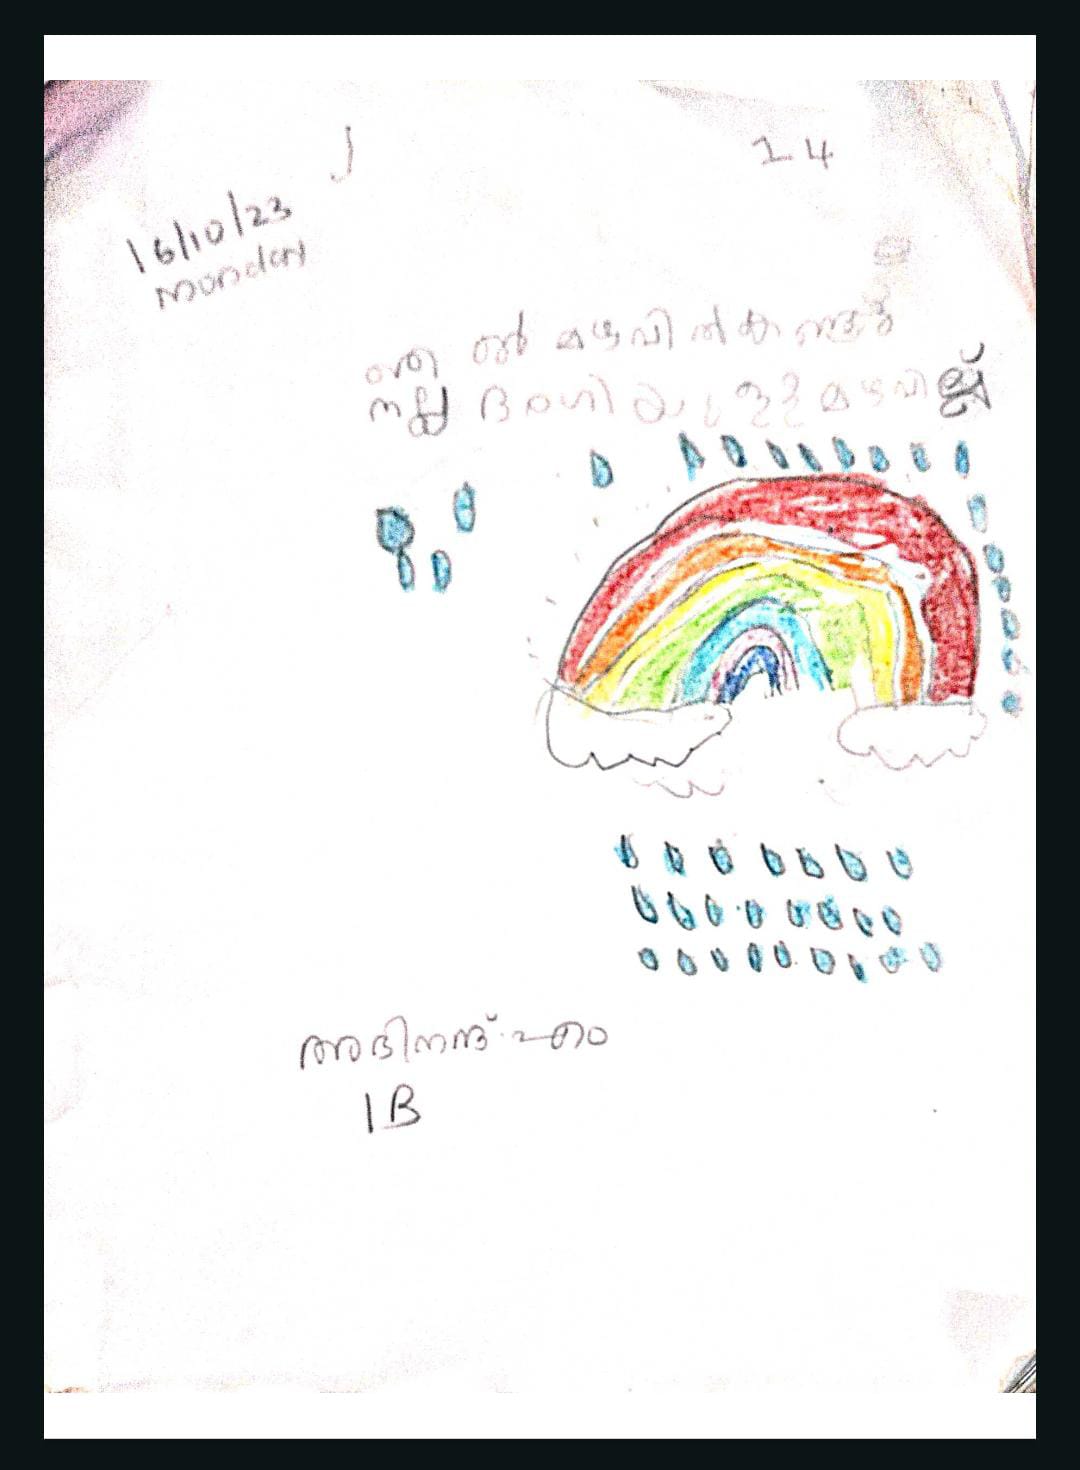 J
14
16/10/23
Monday
ഞാൻ മഴവിൽ കണ്ടു
നല്ല ഭംഗിയുള്ള മഴവില്ല്
അഭിനന്ദ്. എം
1B